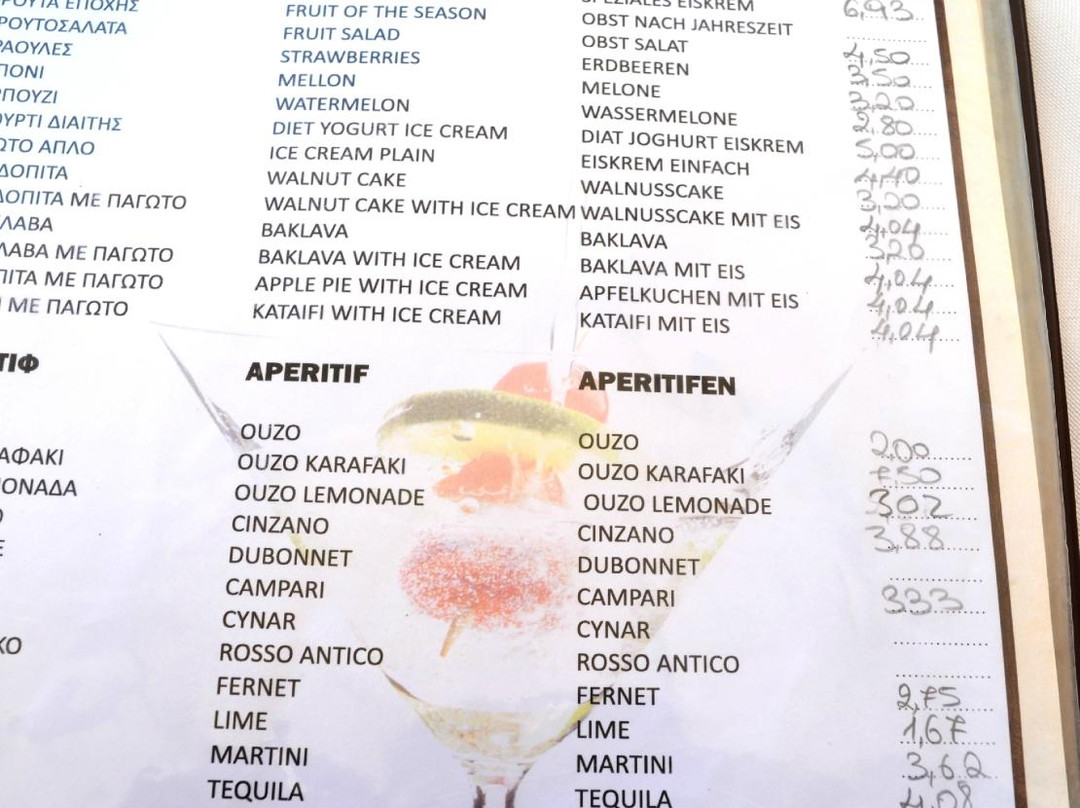 SPEZIALES EISKREM 6,93
ΡΟΥΤΑ ΕΠΟΧΗΣ FRUIT OF THE SEASON OBST NACH JAHRESZEIT
ΡΟΥΤΟΣΑΛΑΤΑ FRUIT SALAD OBST SALAT 4,50
ΡΑΟΥΛΕΣ STRAWBERRIES ERDBEEREN 3,50
ΠΟΝΙ MELLON MELONE 3,20
ΡΠΟΥΖΙ WATERMELON WASSERMELONE 2,80
ΟΥΡΤΙ ΔΙΑΙΤΗΣ DIET YOGURT ICE CREAM DIAT JOGHURT EISKREM 5,00
ΩΤΟ ΑΠΛΟ ICE CREAM PLAIN EISKREM EINFACH 4,40
ΔΟΠΙΤΑ WALNUT CAKE WALNUSSCAKE 3,00
ΔΟΠΙΤΑ ΜΕ ΠΑΓΩΤΟ WALNUT CAKE WITH ICE CREAM WALNUSSCAKE MIT EIS 4,04
ΛΑΒΑ BAKLAVA BAKLAVA 3,20
ΛΑΒΑ ΜΕ ΠΑΓΩΤΟ BAKLAVA WITH ICE CREAM BAKLAVA MIT EIS 4,04
ΠΙΤΑ ΜΕ ΠΑΓΩΤΟ APPLE PIE WITH ICE CREAM APFELKUCHEN MIT EIS 4,04
ΜΕ ΠΑΓΩΤΟ KATAIFI WITH ICE CREAM KATAIFI MIT EIS 4,04
ΤΙΦ APERITIF APERITIFEN
OUZO OUZO 2,00
ΑΦΑΚΙ OUZO KARAFAKI OUZO KARAFAKI 7,50
ΜΟΝΑΔΑ OUZO LEMONADE OUZO LEMONADE 302
CINZANO CINZANO 3,88
DUBONNET DUBONNET
CAMPARI CAMPARI 333
CYNAR CYNAR
ΚΟ ROSSO ANTICO ROSSO ANTICO
FERNET FERNET 2,75
LIME LIME 1,67
MARTINI MARTINI 3,62
TEQUILA TEQUILA